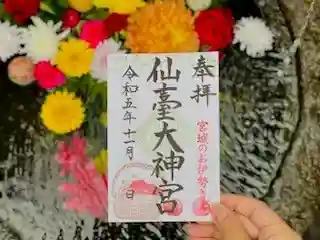 奉拝
宮城のお伊勢さ
仙臺大神宮
令和五年十一月
日